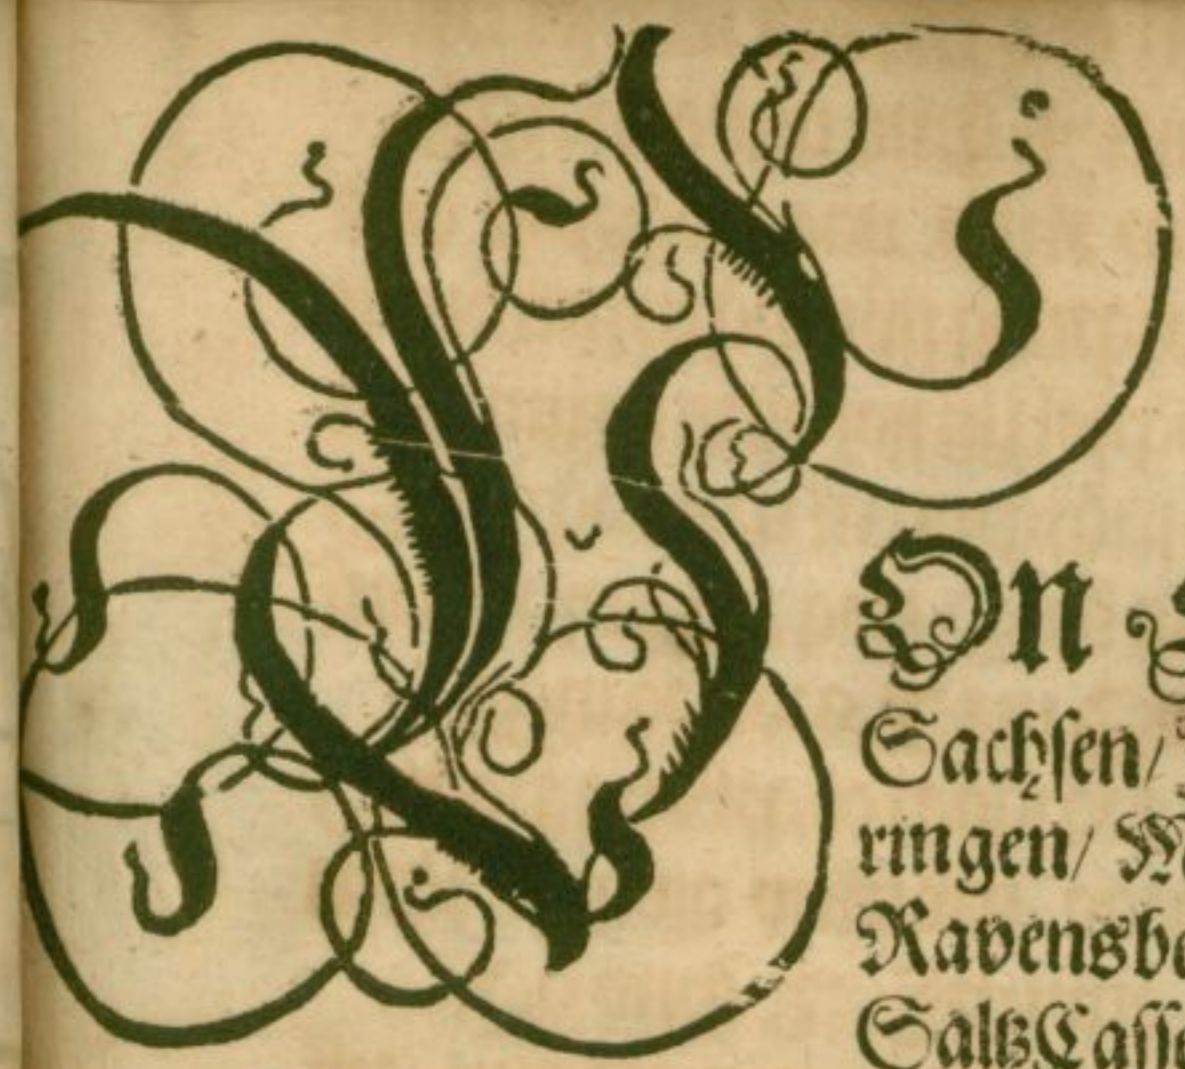 VOn
Sachsen/
ringen/ M
Ravensbe
SaltzCasse